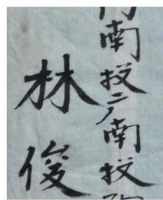 南投广南投
林俊